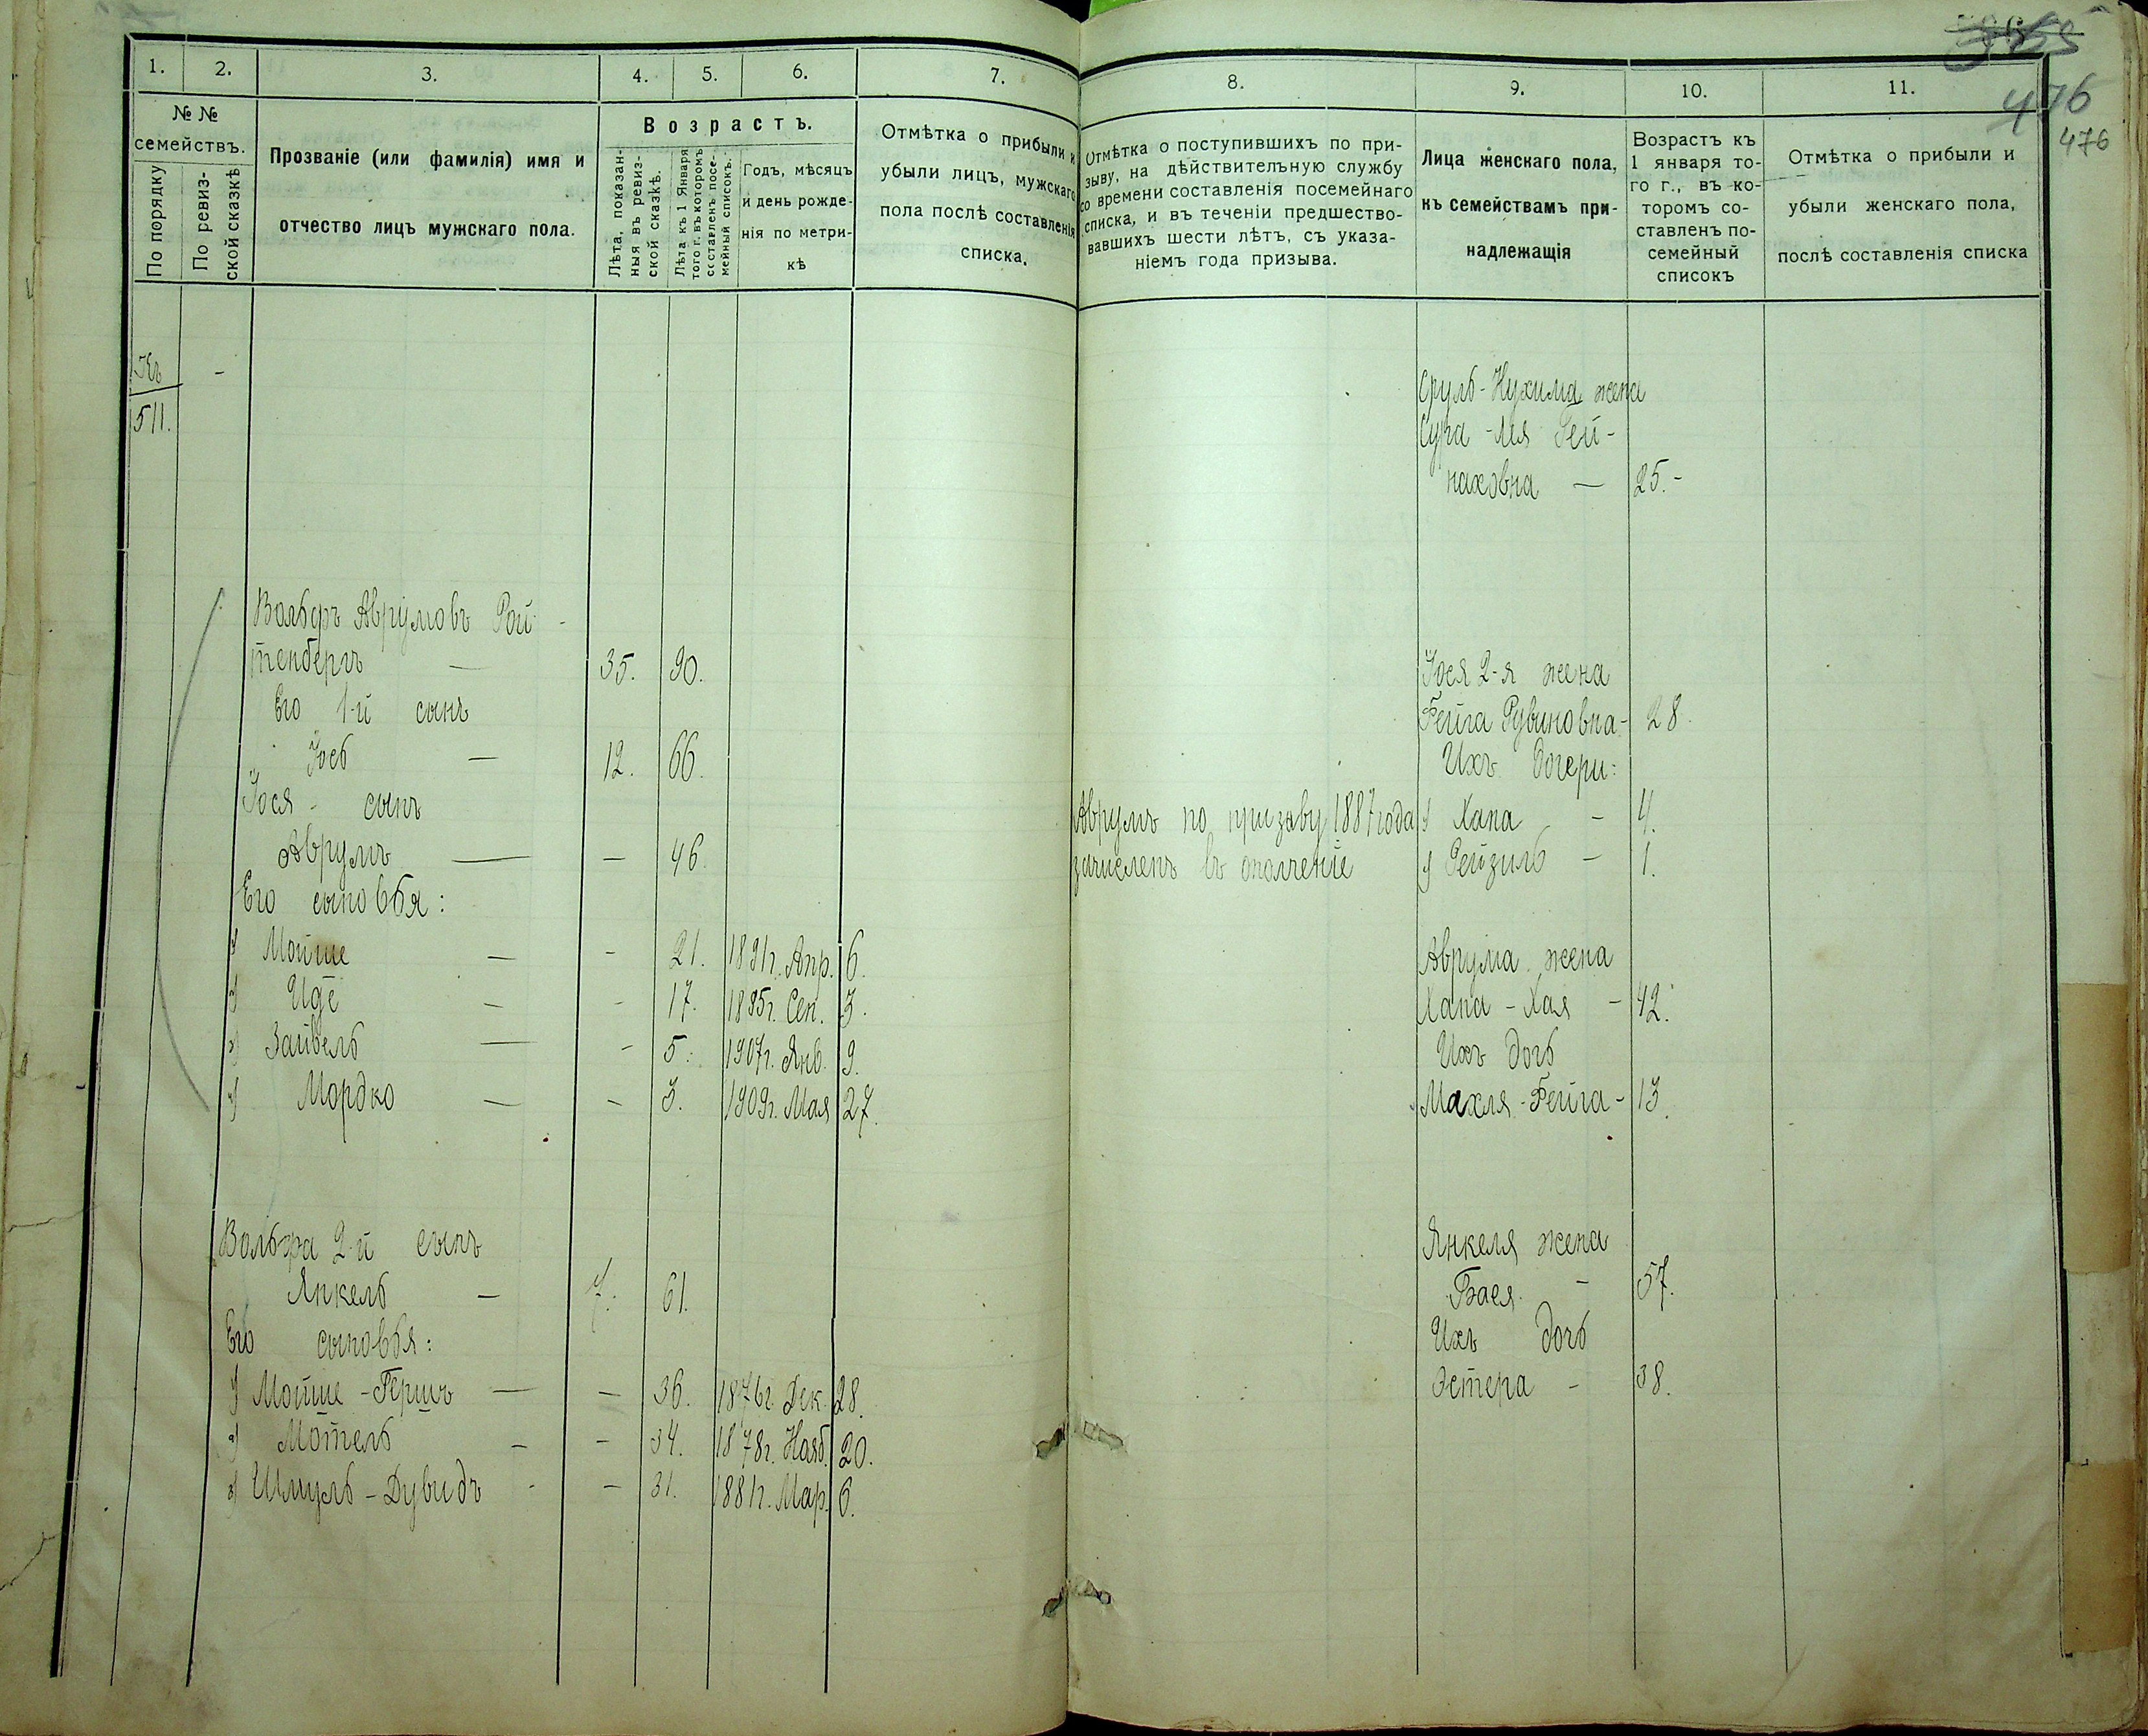 1. 2. 3. 4. 5. 6. 7.
№ № семействъ.
По порядку
По ревиз-
ской сказкѣ
Прозваніе (или фамилія) имя и
отчество лицъ мужскаго пола.
Возрастъ.
Лѣта, показан-
ныя въ ревиз-
ской сказкѣ.
Лѣта къ 1 Января
того г. въ которомъ
составленъ посе-
мейный списокъ.
Годъ, мѣсяцъ
и день рожде-
нія по метри-
кѣ
Отмѣтка о прибыли и
убыли лицъ, мужскаго
пола послѣ составленія
списка.
Къ -
511.
Вольфъ Аврумовъ Рой-
тенбергъ — 35. 90.
Его 1-й сынъ
Іось — 12. 66.
Іося - сынъ
Аврумъ — — 46.
Его сыновья:
1) Мойше — - 21. 1891г. Апр. 6.
2) Иде — - 17. 1895г. Сен. 3.
3) Зайвель — - 5. 1907г. Янв. 9.
4) Мордко — - 3. 1909г. Мая 27.
Вольфа 2-й сынъ
Янкель — 7. 61.
Его сыновья:
1) Мойше-Гершъ — — 36. 1876г. Дек. 28.
2) Мотель - - 34. 1878г. Нояб. 20.
3) Шмуль-Дувидъ - - 31. 1881г. Мар. 6.
476
476
8. 9. 10. 11.
Отмѣтка о поступившихъ по при-
зыву, на дѣйствительную службу
со времени составленія посемейнаго
списка, и въ теченіи предшество-
вавшихъ шести лѣтъ, съ указа-
ніемъ года призыва.
Лица женскаго пола,
къ семействамъ при-
надлежащія
Возрастъ къ
1 января то-
го г., въ ко-
торомъ со-
ставленъ по-
семейный
списокъ
Отмѣтка о прибыли и
убыли женскаго пола,
послѣ составленія списка
Сруль-Нухима жена
Сура-Лея Гей-
наховна — 25.-
Іося 2-я жена
Фейга Рувиновна - 28.
Ихъ дочери:
Аврумъ по призыву 1887 года 1) Хана - 4.
зачисленъ въ ополченіе 2) Рейзиль - 1.
Аврума жена
Хана-Хая - 42.
Ихъ дочь
Махля-Фейга - 13.
Янкеля жена
Бася - 57.
Ихъ дочь
Эстера - 38.